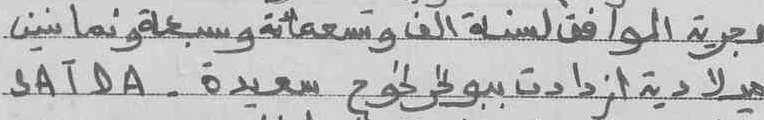 هجرية الموافق لسنة الف وتسعمائة وسبعة وثمانين
ميلادية ازدادت ببولخرلخوج سعيدة . SAÏDA